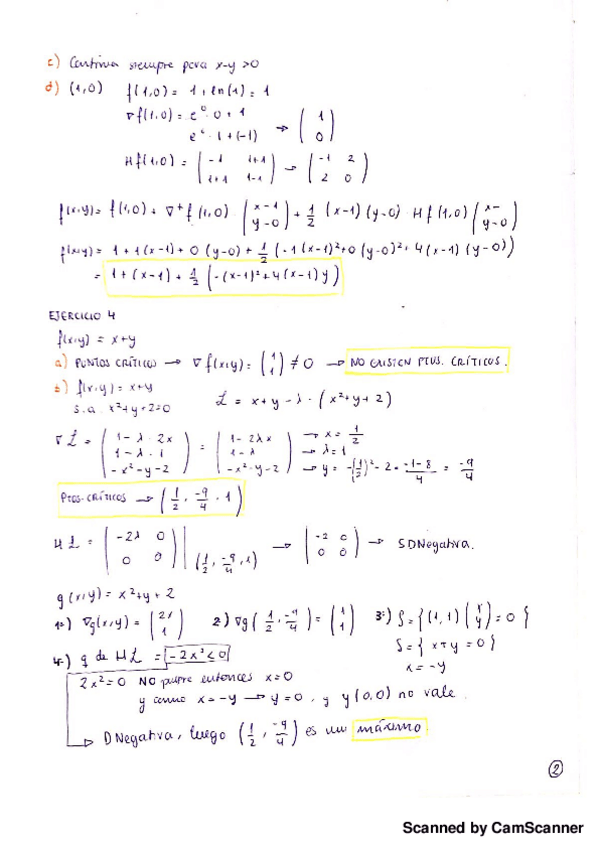 c) Continua siempre para x-y >0
d) (1,0) f(1,0) = 1 + ln(1) = 1
∇f(1,0) = e⁰ · 0 + 1
e⁰ · 1 + (-1) → (1 0)
Hf(1,0) = (-1 1+1 1+1 1-1) → (-1 2 2 0)
f(x,y) = f(1,0) + ∇ᵗf(1,0) · (x-1 y-0) + 1/2 (x-1) (y-0) Hf(1,0) (x- y-0)
f(x,y) = 1 + 1(x-1) + 0 (y-0) + 1/2 (-1(x-1)²+0(y-0)²+4(x-1)(y-0))
= 1 + (x-1) + 1/2 (-(x-1)²+4(x-1)y)
EJERCICIO 4
f(x,y) = x+y
a) PUNTOS CRÍTICOS → ∇f(x,y) = (1 1) ≠ 0 → NO EXISTEN PTOS. CRÍTICOS.
b) f(x,y) = x+y
s.a. x²+y+2=0 ℒ = x+y - λ · (x²+y+2)
∇ℒ = (1-λ·2x 1-λ·1 -x²-y-2) = (1-2λx 1-λ -x²-y-2) → x = 1/2 → λ=1 → y = -(1/2)² - 2 = -1-8/4 = -9/4
Ptos. CRÍTICOS → (1/2, -9/4, 1)
Hℒ = (-2λ 0 0 0) | (1/2, -9/4, 1) → (-2 0 0 0) → SDNegativa.
g(x,y) = x²+y+2
1º) ∇g(x,y) = (2x 1) 2º) ∇g(1/2, -9/4) = (1 1) 3º) S = {(1,1) (x y) = 0}
S = {x+y = 0}
x = -y
4º) q de Hℒ = -2x² < 0
2x²=0 NO puede entonces x=0
y como x = -y → y = 0, y (0,0) no vale.
→ DNegativa, luego (1/2, -9/4) es un máximo.
2
Scanned by CamScanner